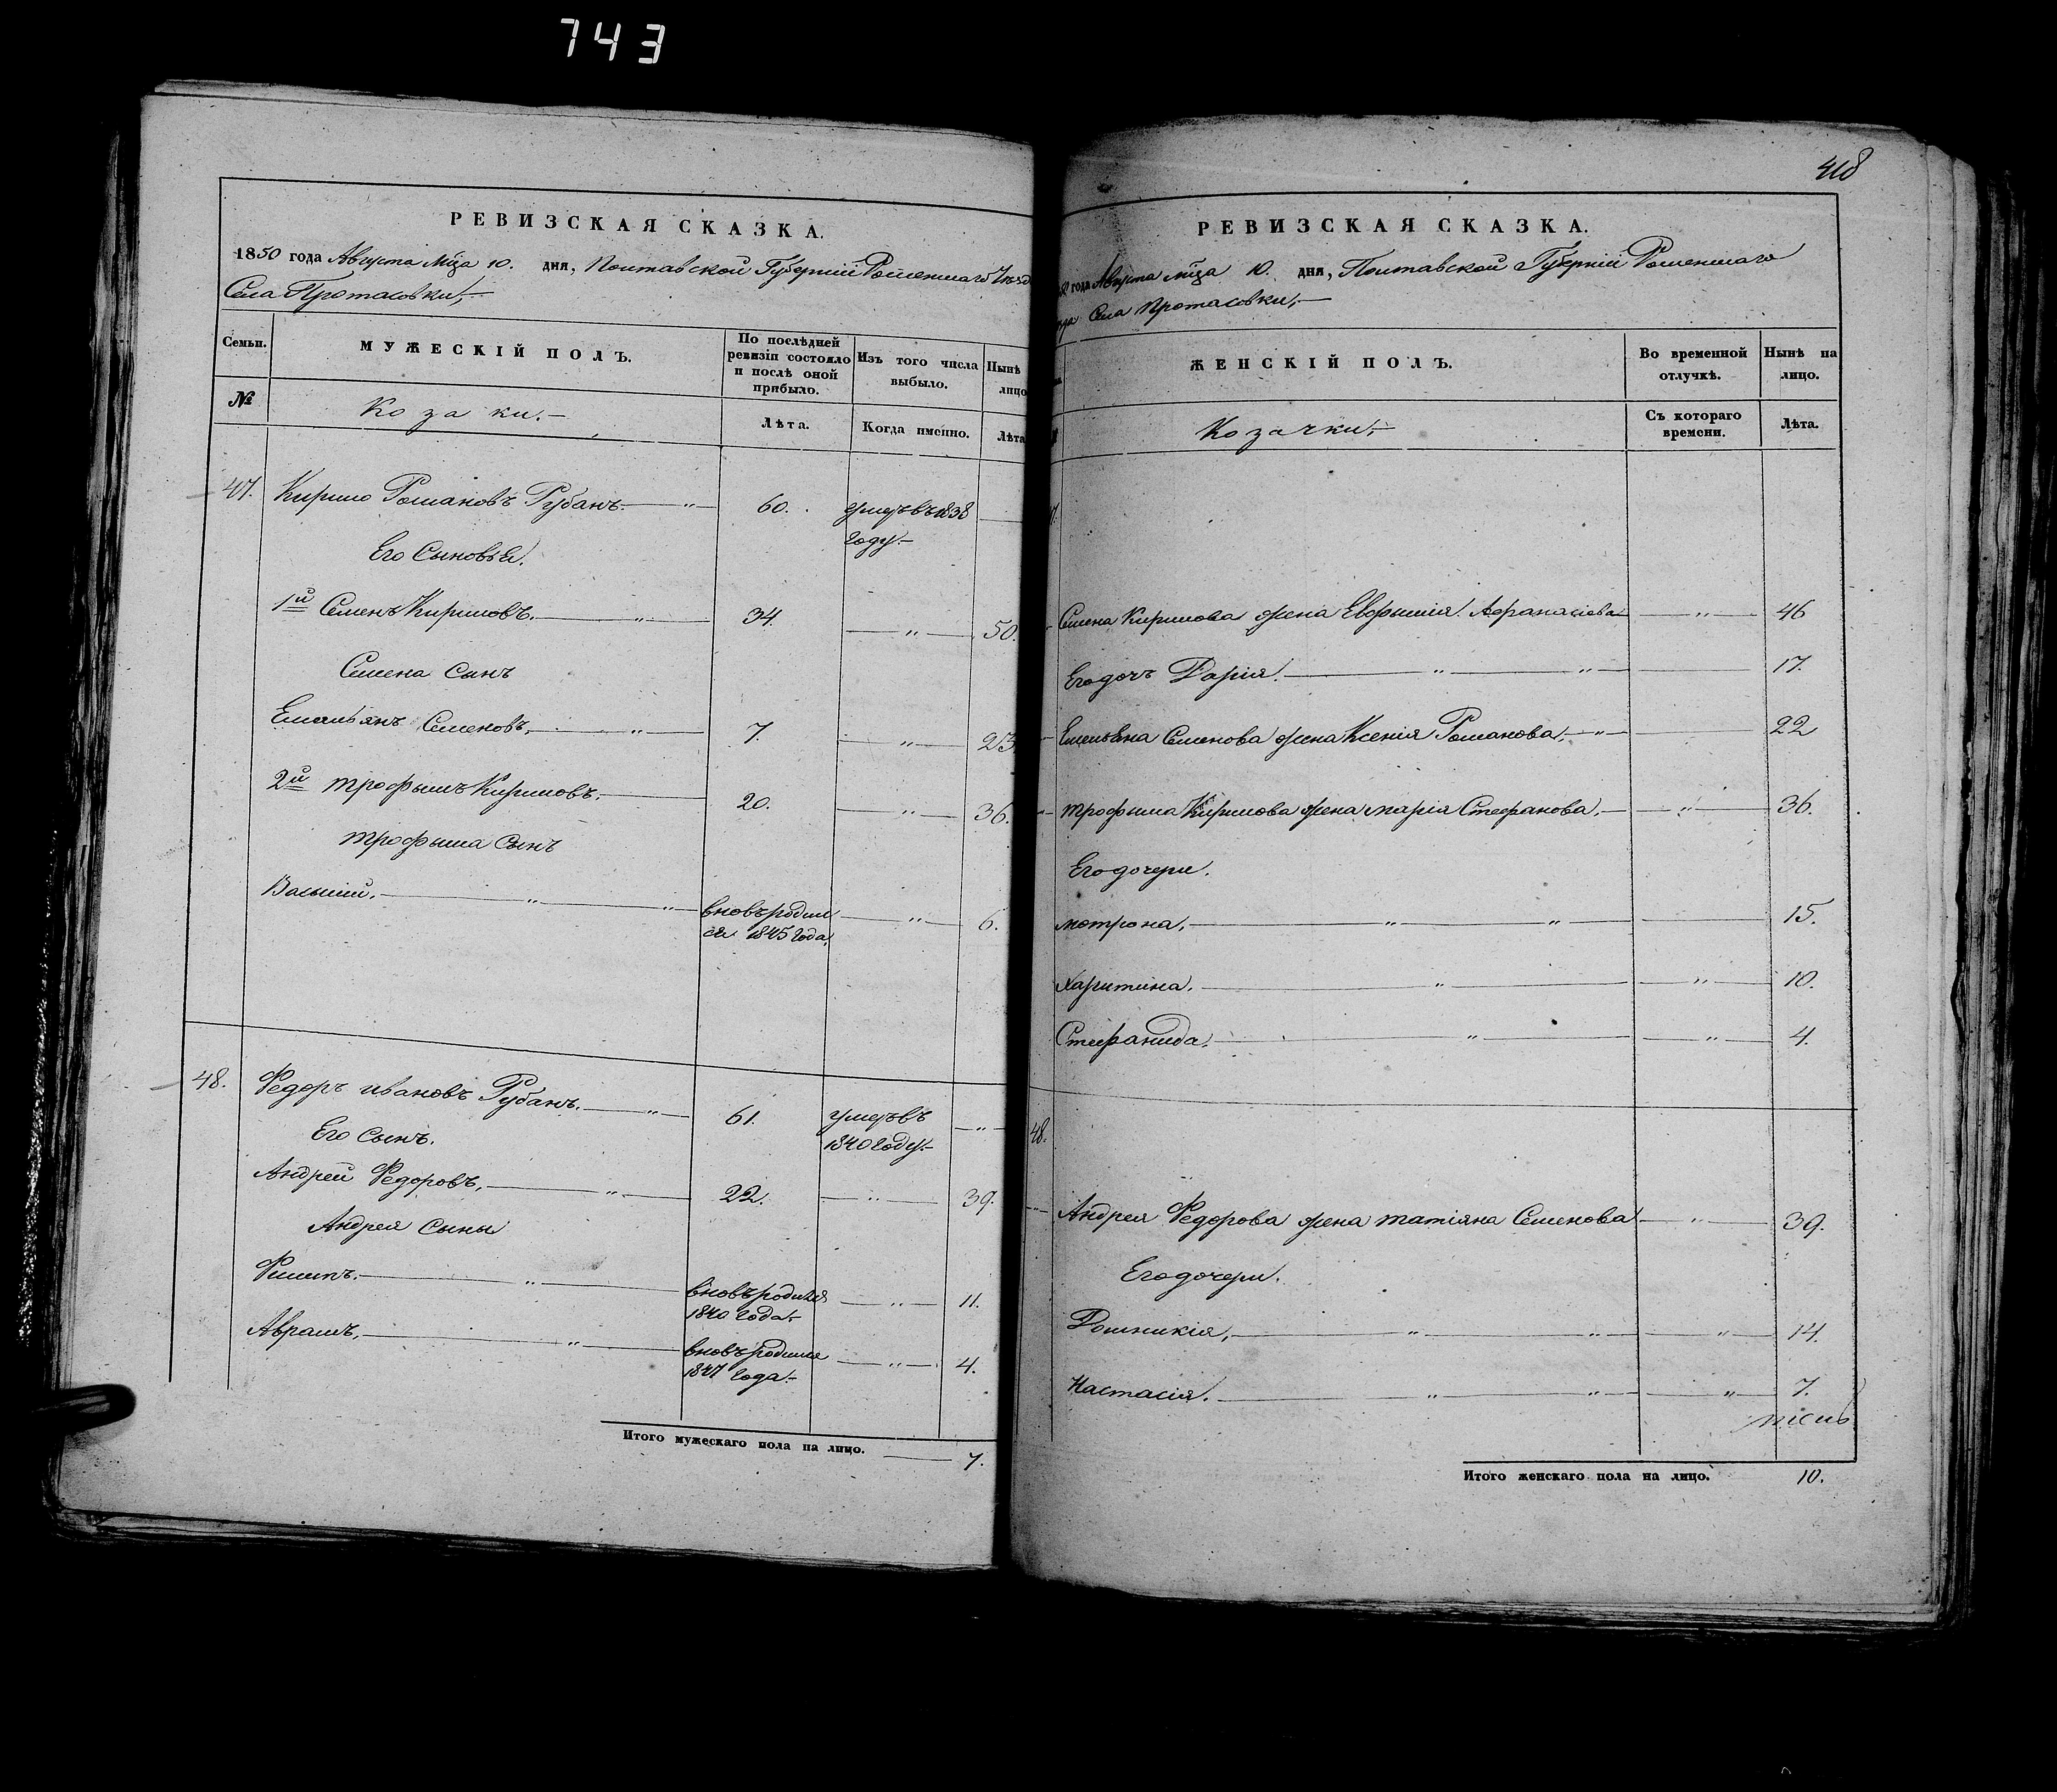 743
РЕВИЗСКАЯ СКАЗКА.
1850 года Августа мца 10. дня, Полтавской Губерніи Роменскаго Уѣзд
Села Протасовки,
Семьи.
МУЖЕСКІЙ ПОЛЪ.
По послѣдней ревизіи состояло и послѣ оной прибыло.
Изъ того числа выбыло.
Нынѣ лицо
№
Козаки.
Лѣта.
Когда именно.
Лѣта
47. Кирило Романовъ Рубанъ. " 60. умеръ въ 1838
году.
Его Сыновья.
1й Семенъ Кириловъ. " 34. " 50.
Семена Сынъ
Емельянъ Семеновъ, " 7. " 23
2й Трофымъ Кириловъ. 20. " 36.
Трофыма Сынъ
Василій. " " вновь родил
ся 1845 года, " 6.
48. Федоръ Ивановъ Рубанъ. " 61. умеръ въ "
1840 году.
Его Сынъ.
Андрей Федоровъ, " 22. " 39.
Андрея Сыны
Филипъ. " вновь родился
1840 года. " 11.
Аврамъ, " вновь родился
1847 года. " 4.
Итого мужескаго пола на лицо. 7.
418
РЕВИЗСКАЯ СКАЗКА.
года Августа мца 10. дня, Полтавской Губерніи Роменскаго
зда Села Протасовки,
ЖЕНСКІЙ ПОЛЪ.
Во временной отлучкѣ.
Нынѣ на лицо.
Козачки,
Съ котораго времени.
Лѣта.
Семена Кирилова жена Евфимія Афанасіева " 46
Его дочь Дарія. " " 17.
Емельяна Семенова жена Ксенія Романова. " 22
Трофыма Кирилова жена Марія Стефанова. " 36.
Его дочери.
Мотрона, " " 15.
Харитина. " " 10.
Стефанида. " " 4.
48.
Андрея Федорова жена Татіяна Семенова " 39.
Его дочери.
Домникія, " " " 14.
Настасія. " " " 7.
Итого женскаго пола на лицо. 10.